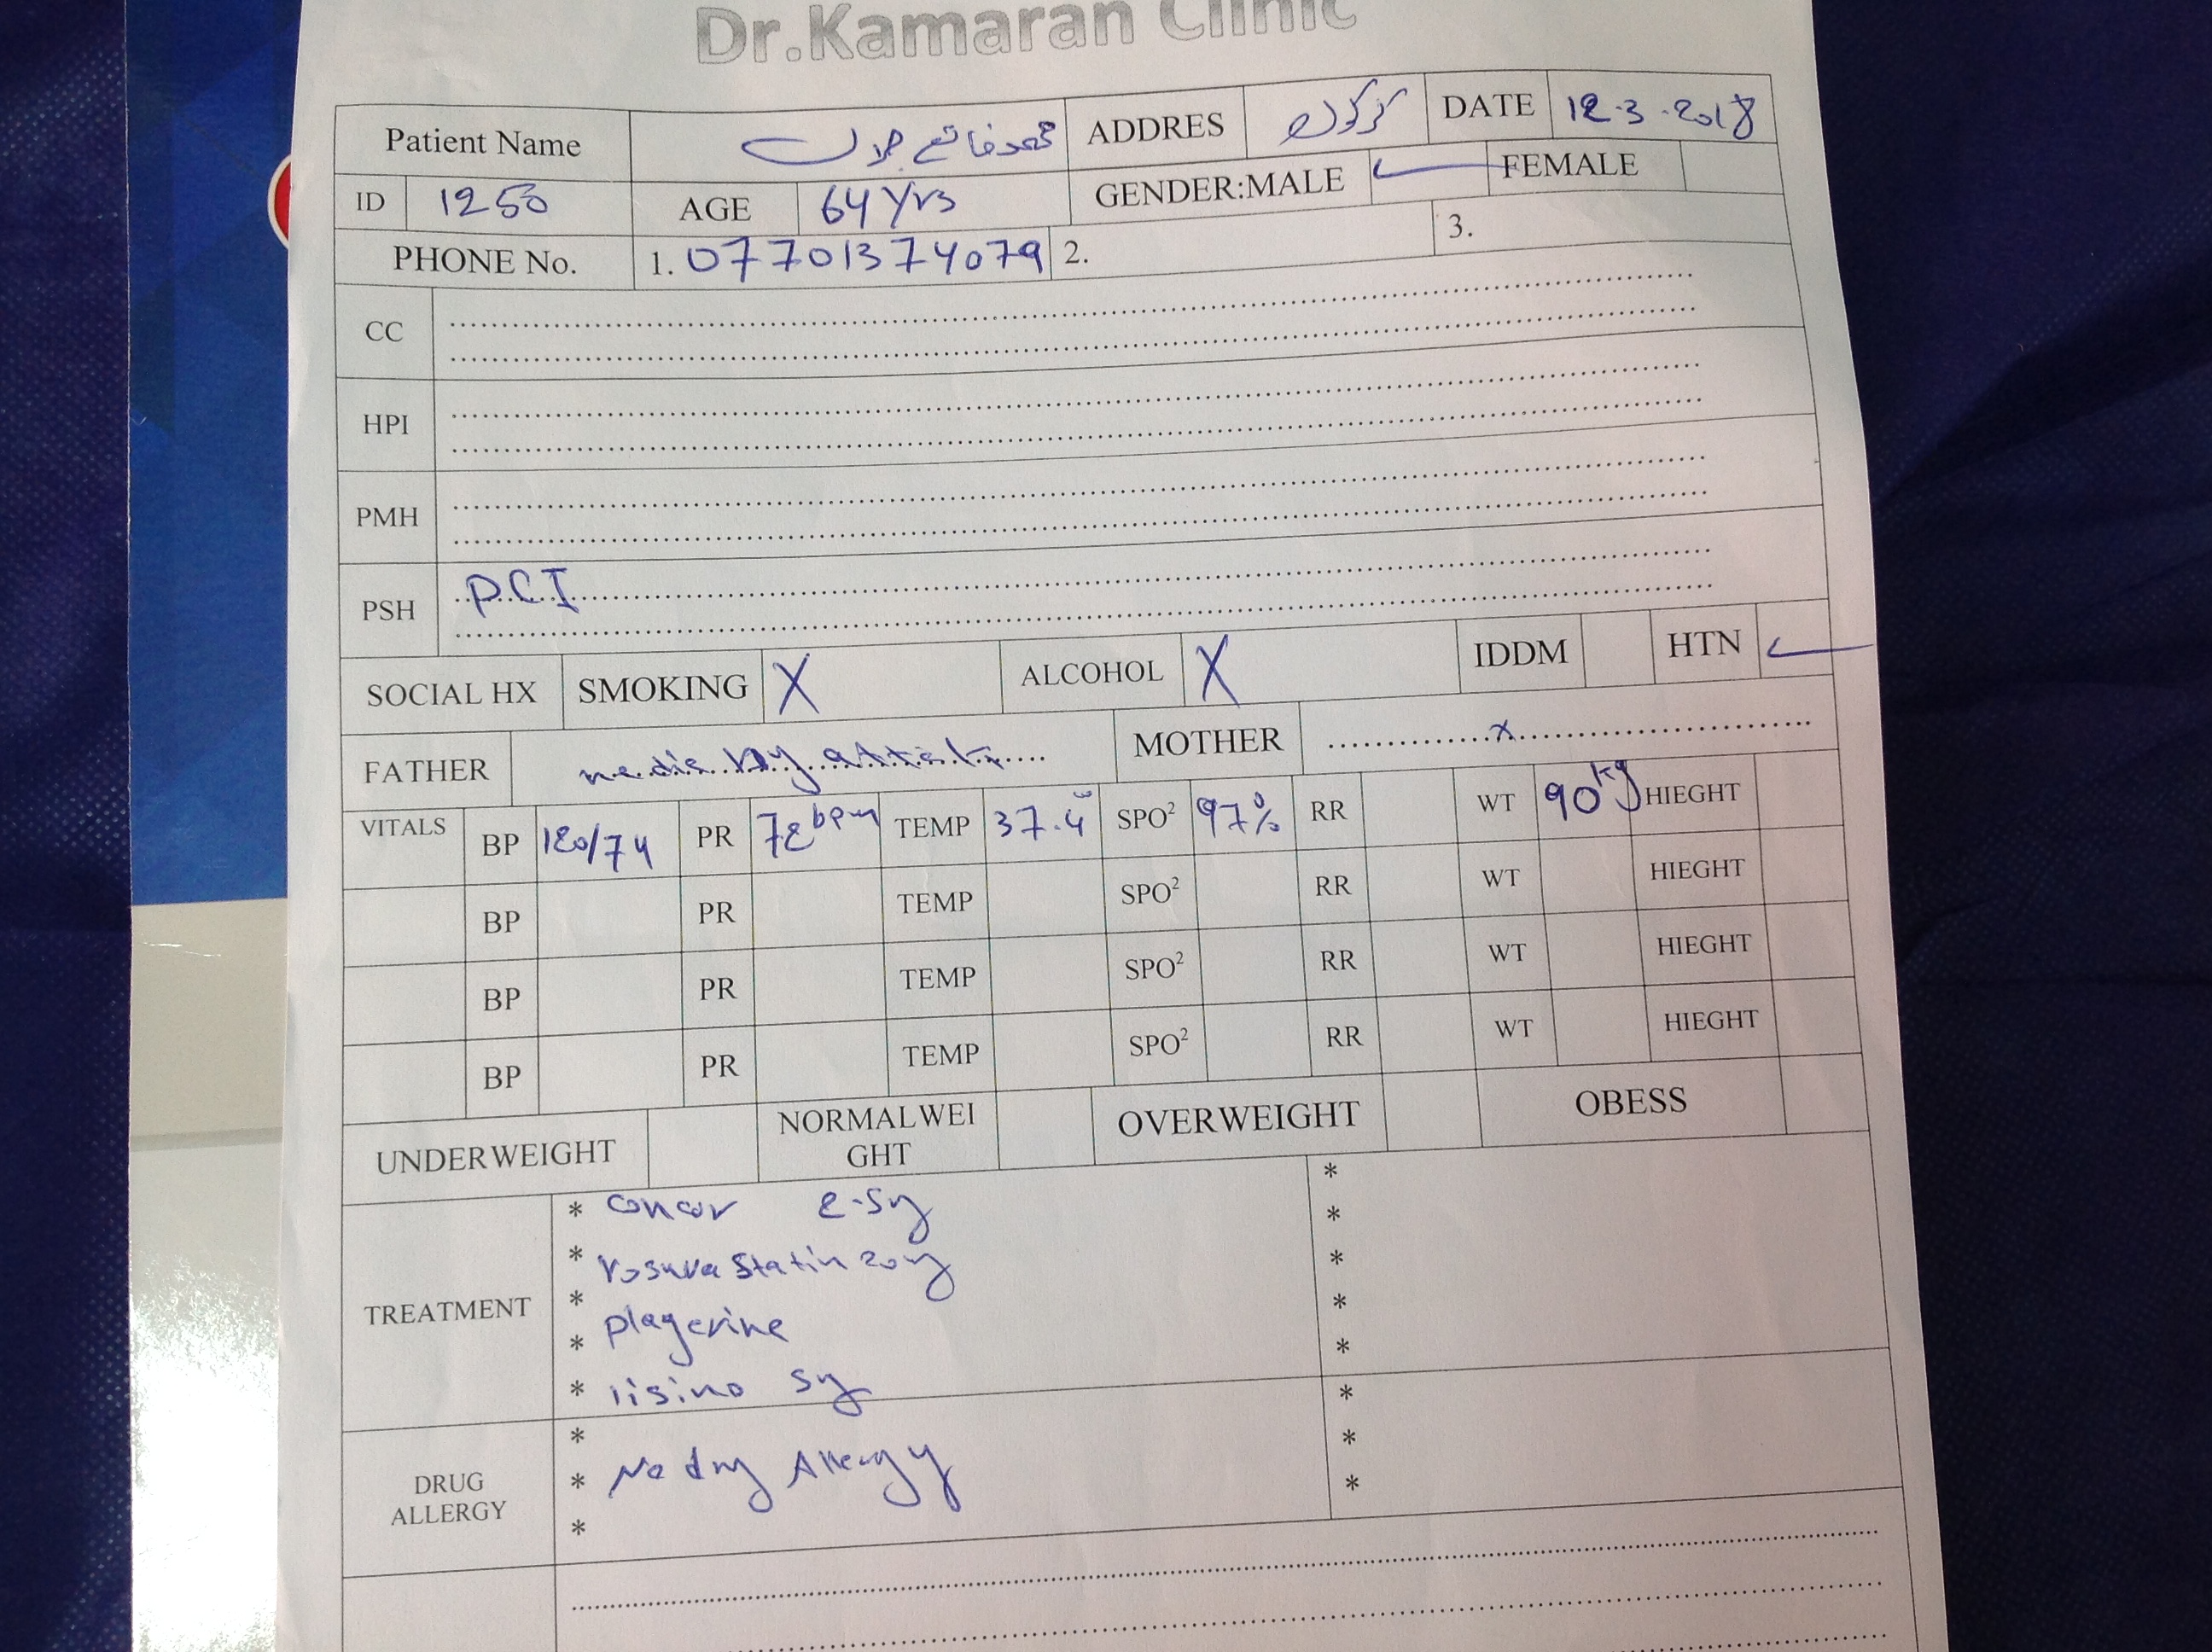 Dr.Kamaran Clinic
Patient Name محمد فاتح جلال ADDRES كركوك DATE 12-3-2018
ID 1250 AGE 64 Yrs GENDER:MALE FEMALE
PHONE No. 1. 07701374079 2. 3.
CC
HPI
PMH
PSH PCI
SOCIAL HX SMOKING X ALCOHOL X IDDM HTN
FATHER MOTHER x
VITALS BP 120/74 PR 72 bpm TEMP 37.4 SPO² 97% RR WT 90 kg HIEGHT
BP PR TEMP SPO² RR WT HIEGHT
BP PR TEMP SPO² RR WT HIEGHT
BP PR TEMP SPO² RR WT HIEGHT
UNDERWEIGHT NORMALWEI
GHT OVERWEIGHT OBESS
TREATMENT
* concor 2.5mg *
* rosuvastatin 20mg *
* plagerine *
* *
* lisino 5mg *
DRUG
ALLERGY
* *
* No drug Allergy *
* *